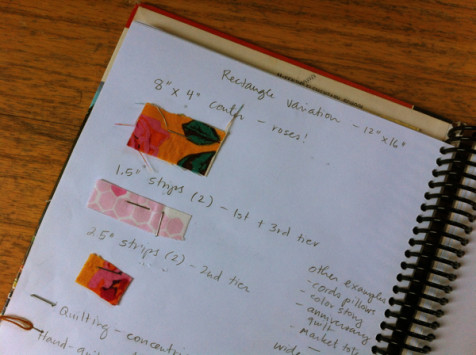 Rectangle Variation - 12" x 16"
8" x 4" center - roses!
1.5" strips (2) - 1st + 3rd tier
2.5" strips (2) - 2nd tier
other examples
- cords pillows
- color story
- anniversary
quilt
- market tote
Quilting - concentric
Hand-
wide